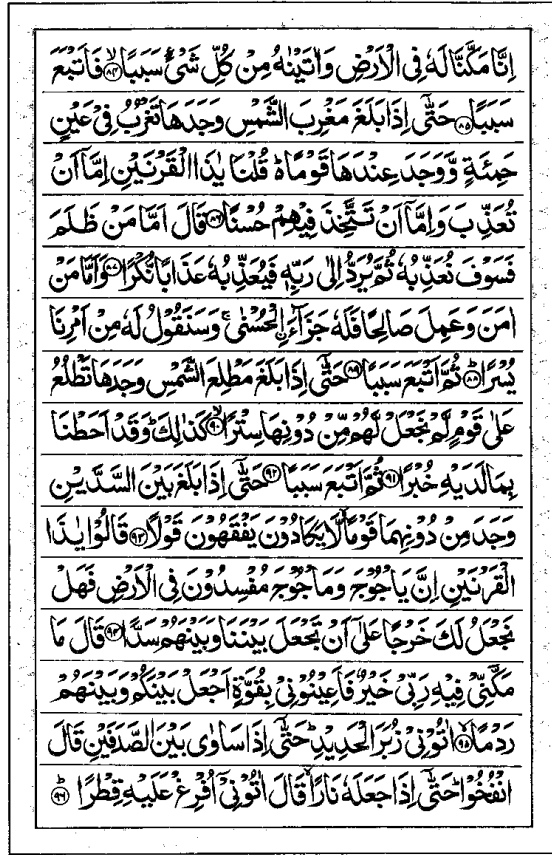 اِنَّا مَكَّنَّا لَهٗ فِی الْاَرْضِ وَاٰتَیْنٰهُ مِنْ كُلِّ شَیْءٍ سَبَبًا ۙ﴿۸۴﴾ فَاَتْبَعَ
سَبَبًا ﴿۸۵﴾ حَتّٰۤی اِذَا بَلَغَ مَغْرِبَ الشَّمْسِ وَجَدَهَا تَغْرُبُ فِیْ عَیْنٍ
حَمِئَةٍ وَّوَجَدَ عِنْدَهَا قَوْمًا ؕ قُلْنَا یٰذَا الْقَرْنَیْنِ اِمَّاۤ اَنْ
تُعَذِّبَ وَاِمَّاۤ اَنْ تَتَّخِذَ فِیْهِمْ حُسْنًا ﴿۸۶﴾ قَالَ اَمَّا مَنْ ظَلَمَ
فَسَوْفَ نُعَذِّبُهٗ ثُمَّ یُرَدُّ اِلٰی رَبِّهٖ فَیُعَذِّبُهٗ عَذَابًا نُّكْرًا ﴿۸۷﴾ وَاَمَّا مَنْ
اٰمَنَ وَعَمِلَ صَالِحًا فَلَهٗ جَزَآءَ اۨلْحُسْنٰی ۚ وَسَنَقُوْلُ لَهٗ مِنْ اَمْرِنَا
یُسْرًا ؕ﴿۸۸﴾ ثُمَّ اَتْبَعَ سَبَبًا ﴿۸۹﴾ حَتّٰۤی اِذَا بَلَغَ مَطْلِعَ الشَّمْسِ وَجَدَهَا تَطْلُعُ
عَلٰی قَوْمٍ لَّمْ نَجْعَلْ لَّهُمْ مِّنْ دُوْنِهَا سِتْرًا ۙ﴿۹۰﴾ كَذٰلِكَ ؕ وَقَدْ اَحَطْنَا
بِمَا لَدَیْهِ خُبْرًا ﴿۹۱﴾ ثُمَّ اَتْبَعَ سَبَبًا ﴿۹۲﴾ حَتّٰۤی اِذَا بَلَغَ بَیْنَ السَّدَّیْنِ
وَجَدَ مِنْ دُوْنِهِمَا قَوْمًا ۙ لَّا یَكَادُوْنَ یَفْقَهُوْنَ قَوْلًا ﴿۹۳﴾ قَالُوْا یٰذَا
الْقَرْنَیْنِ اِنَّ یَاْجُوْجَ وَمَاْجُوْجَ مُفْسِدُوْنَ فِی الْاَرْضِ فَهَلْ
نَجْعَلُ لَكَ خَرْجًا عَلٰۤی اَنْ تَجْعَلَ بَیْنَنَا وَبَیْنَهُمْ سَدًّا ﴿۹۴﴾ قَالَ مَا
مَكَّنِّیْ فِیْهِ رَبِّیْ خَیْرٌ فَاَعِیْنُوْنِیْ بِقُوَّةٍ اَجْعَلْ بَیْنَكُمْ وَبَیْنَهُمْ
رَدْمًا ۙ﴿۹۵﴾ اٰتُوْنِیْ زُبَرَ الْحَدِیْدِ ؕ حَتّٰۤی اِذَا سَاوٰی بَیْنَ الصَّدَفَیْنِ قَالَ
انْفُخُوْا ؕ حَتّٰۤی اِذَا جَعَلَهٗ نَارًا ۙ قَالَ اٰتُوْنِیْۤ اُفْرِغْ عَلَیْهِ قِطْرًا ؕ﴿۹۶﴾